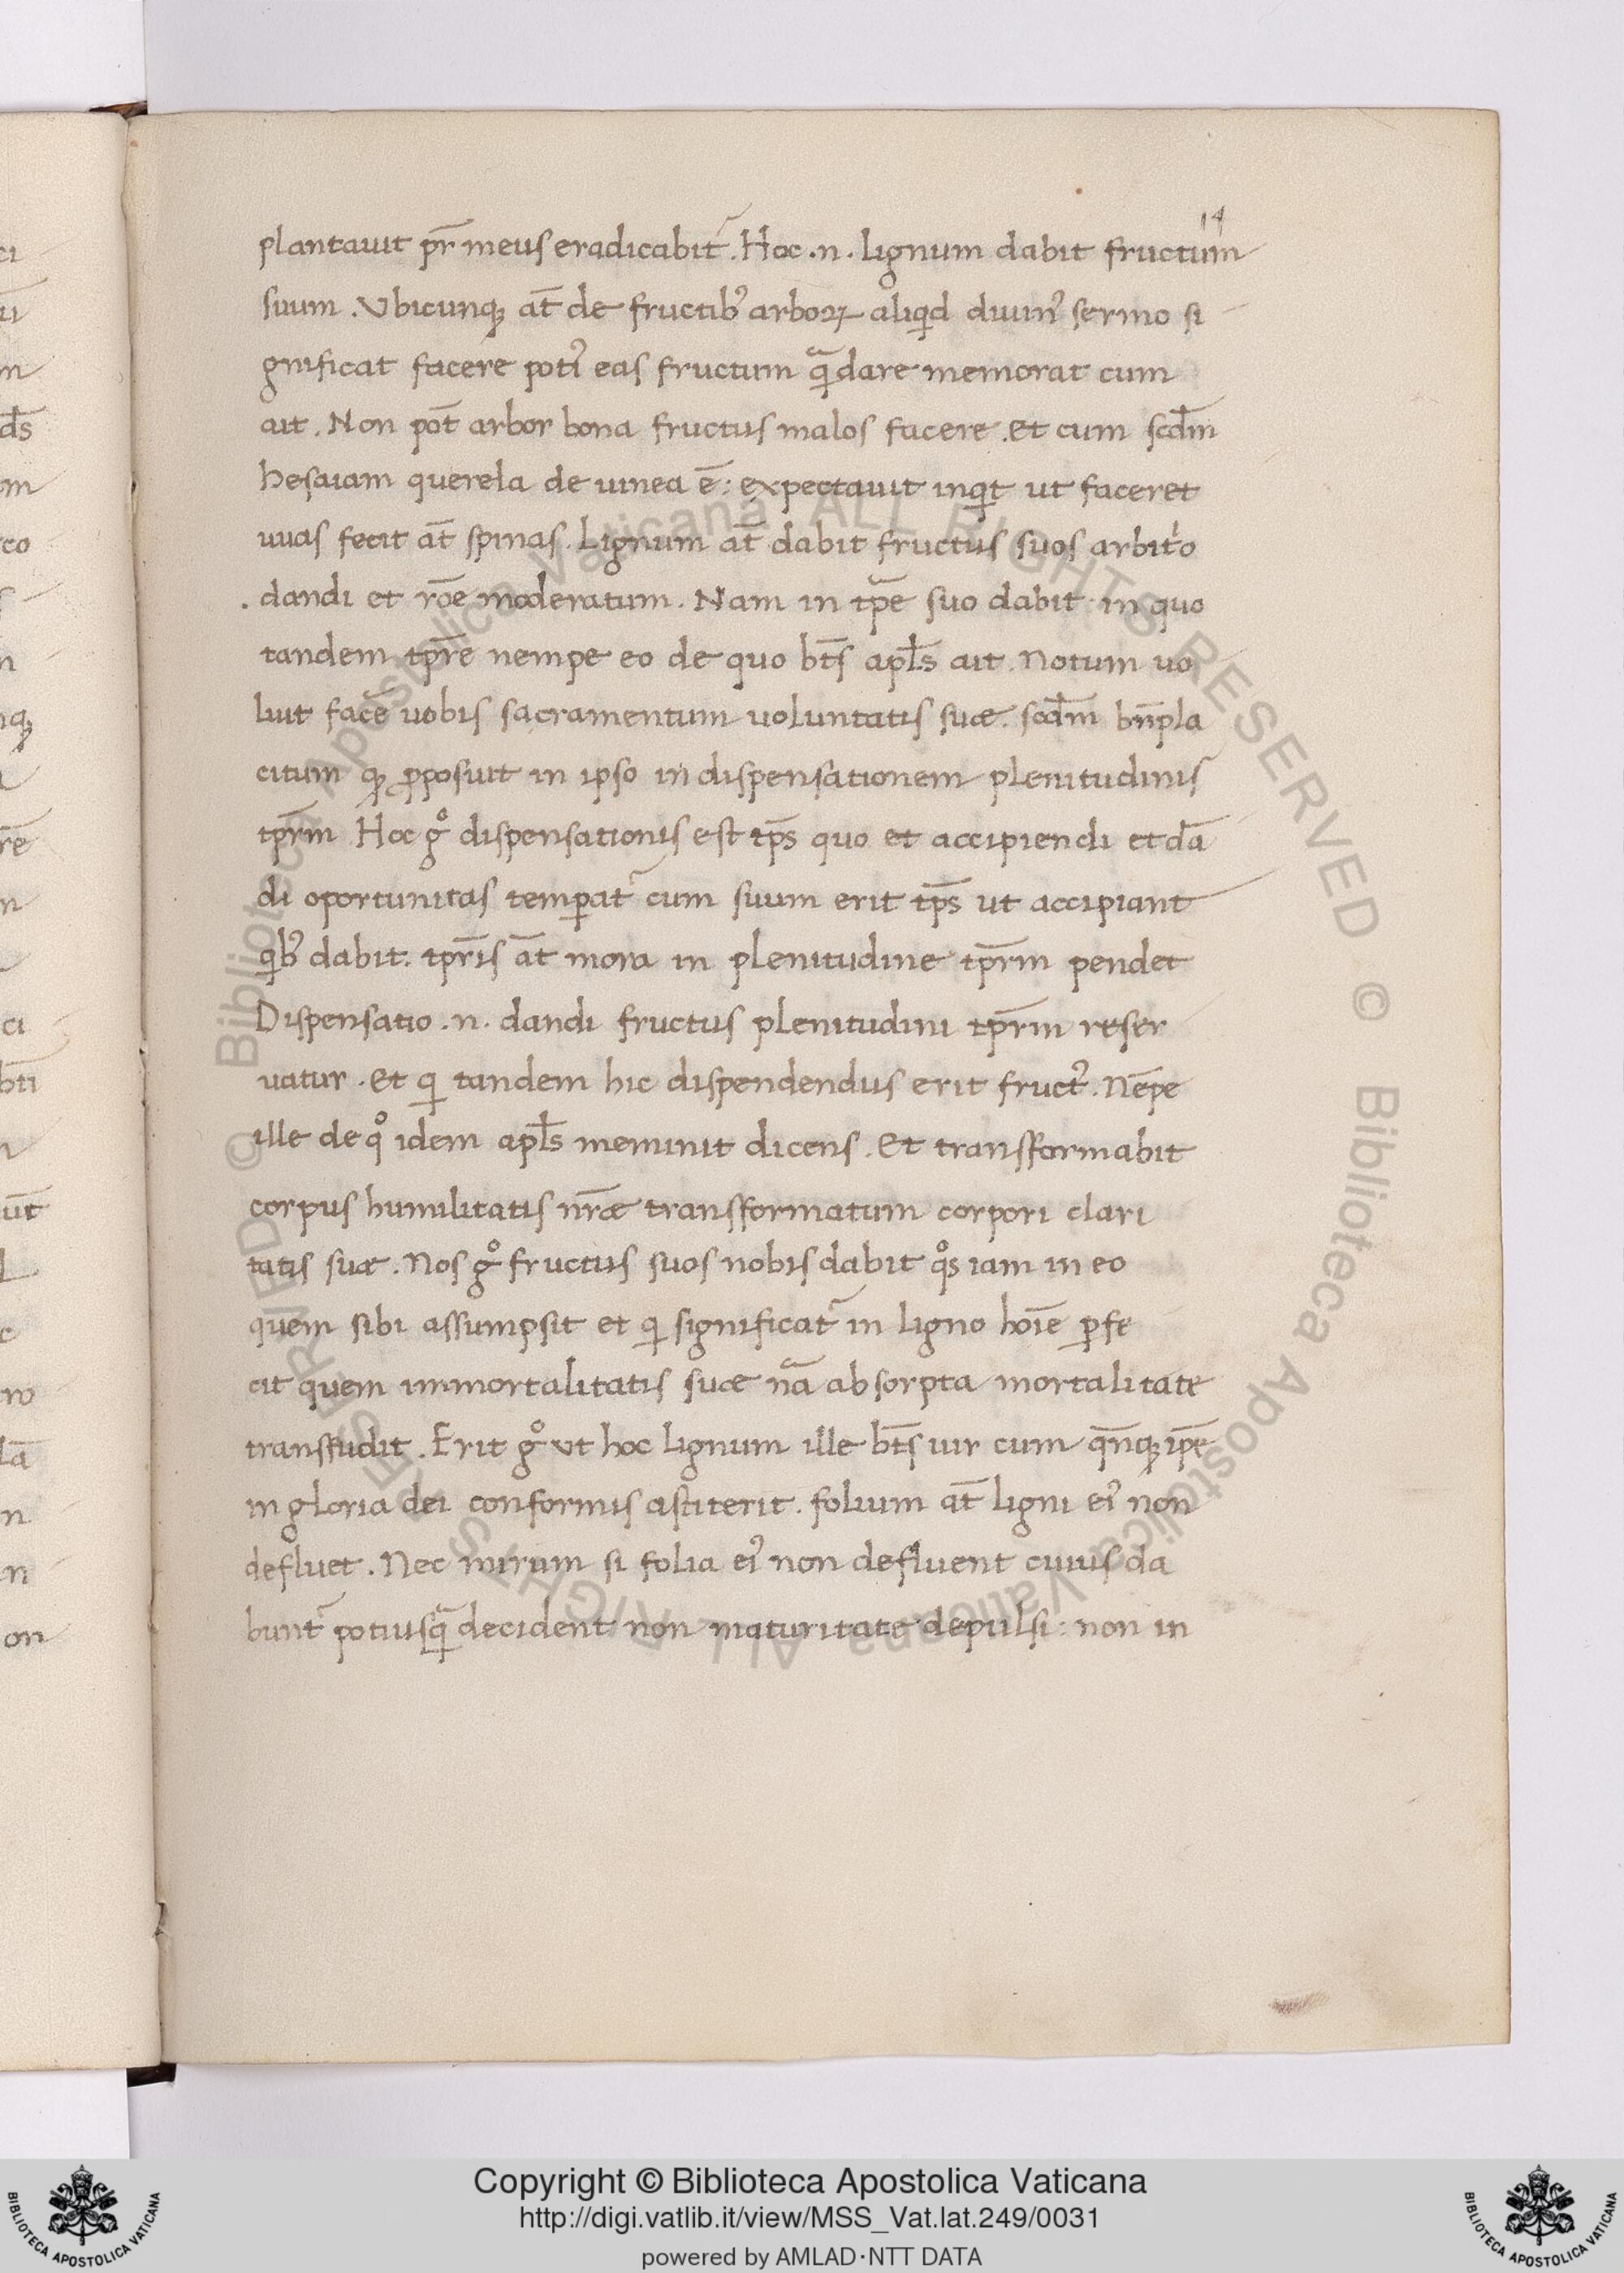 14
plantauit pr̄ meus eradicabit᷑. Hoc .n. lignum dabit fructum
suum. Vbicunqꝫ at̄ de fructibꝰ arboꝝ aliqid diuinꝰ sermo si
gnificat facere potiꝰ eas fructum q̃ dare memorat cum
ait. Non pot̄ arbor bona fructus malos facere. Et cum scd̄m
hesaiam querela de uinea ē: expectauit inqit ut faceret
uuas fecit at̄ spinas. Lignum at̄ dabit fructus suos arbitͥo
dandi et rōe moderatum. Nam in tp̄e suo dabit: in quo
tandem tpr̄e nempe eo de quo bt̄s apl̄s ait. Notum uo
luit facē uobis sacramentum uoluntatis suæ. scd̄m bn̄pla
citum qꝫ ꝓposuit in ipso in dispensationem plenitudinis
tpr̄m Hoc gͦ dispensationis est tp̄s quo et accipiendi et dā
di oportunitas temꝑat᷑ cum suum erit tp̄s ut accipiant
qibꝰ dabit. tpr̄is āt mora in plenitudine tpr̄m pendet
Dispensatio .n. dandi fructus plenitudini tpr̄m reser
uatur. Et qi tandem hic dispendendus erit fructꝰ. Nēpe
ille de qͦ idem apl̄s meminit dicens. Et transformabit
corpus humilitatis nr̄æ transformatum corpori clari
tatis suæ. Nos gͦ fructus suos nobis dabit qͦs iam in eo
quem sibi assumpsit et qi significat᷑ in ligno hoīe ꝑfe
cit quem immortalitatis suæ nā absorpta mortalitate
transfudit. Erit gͦ ut hoc lignum ille bt̄s uir cum qn̄qꝫ ip̄e
in gloria dei conformis astiterit. folium at̄ ligni eiꝰ non
defluet. Nec mirum si folia eiꝰ non defluent cuius da
bunt᷑ potiusq̃ decident non maturitate depulsi: non in
© Biblioteca Apostolica Vaticana ALL RIGHTS RESERVED © Biblioteca Apostolica Vaticana ALL RIGHTS RESERVED
Copyright © Biblioteca Apostolica Vaticana
http://digi.vatlib.it/view/MSS_Vat.lat.249/0031
powered by AMLAD·NTT DATA
BIBLIOTECA APOSTOLICA VATICANA
BIBLIOTECA APOSTOLICA VATICANA